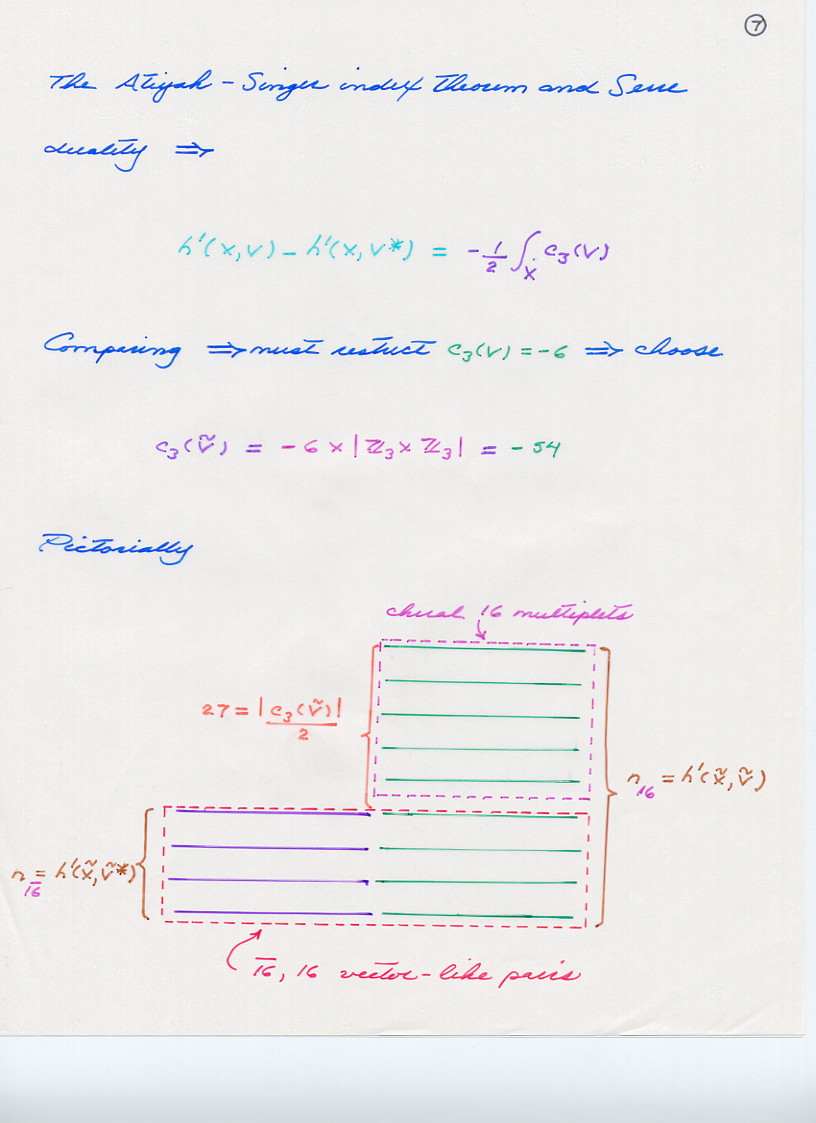 ⑦
The Atiyah - Singer index theorem and Serre
duality ⟹
h¹(X,V) - h¹(X,V*) = -1/2 ∫_X c₃(V)
Comparing ⟹ must restrict c₃(V) = -6 ⟹ choose
c₃(Ṽ) = -6 × |ℤ₃ × ℤ₃| = -54
Pictorially
chiral 16 multiplets
27 = |c₃(Ṽ)|/2
n₁₆ = h¹(X̃,Ṽ)
n_1̅6̅ = h¹(X̃,Ṽ*)
1̅6̅, 16 vector-like pairs